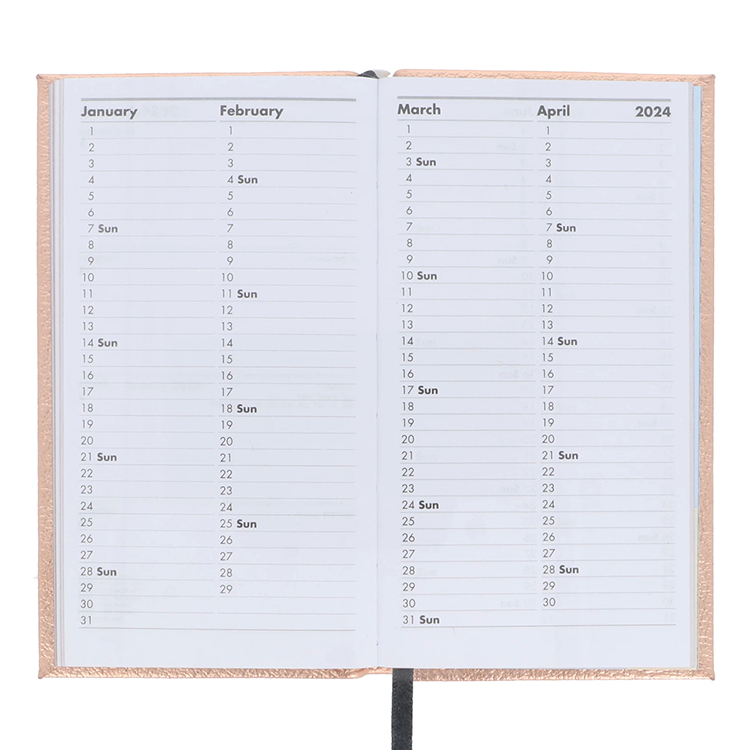 January February
1 1
2 2
3 3
4 4 Sun
5 5
6 6
7 Sun 7
8 8
9 9
10 10
11 11 Sun
12 12
13 13
14 Sun 14
15 15
16 16
17 17
18 18 Sun
19 19
20 20
21 Sun 21
22 22
23 23
24 24
25 25 Sun
26 26
27 27
28 Sun 28
29 29
30
31
March April 2024
1 1
2 2
3 Sun 3
4 4
5 5
6 6
7 7 Sun
8 8
9 9
10 Sun 10
11 11
12 12
13 13
14 14 Sun
15 15
16 16
17 Sun 17
18 18
19 19
20 20
21 21 Sun
22 22
23 23
24 Sun 24
25 25
26 26
27 27
28 28 Sun
29 29
30 30
31 Sun